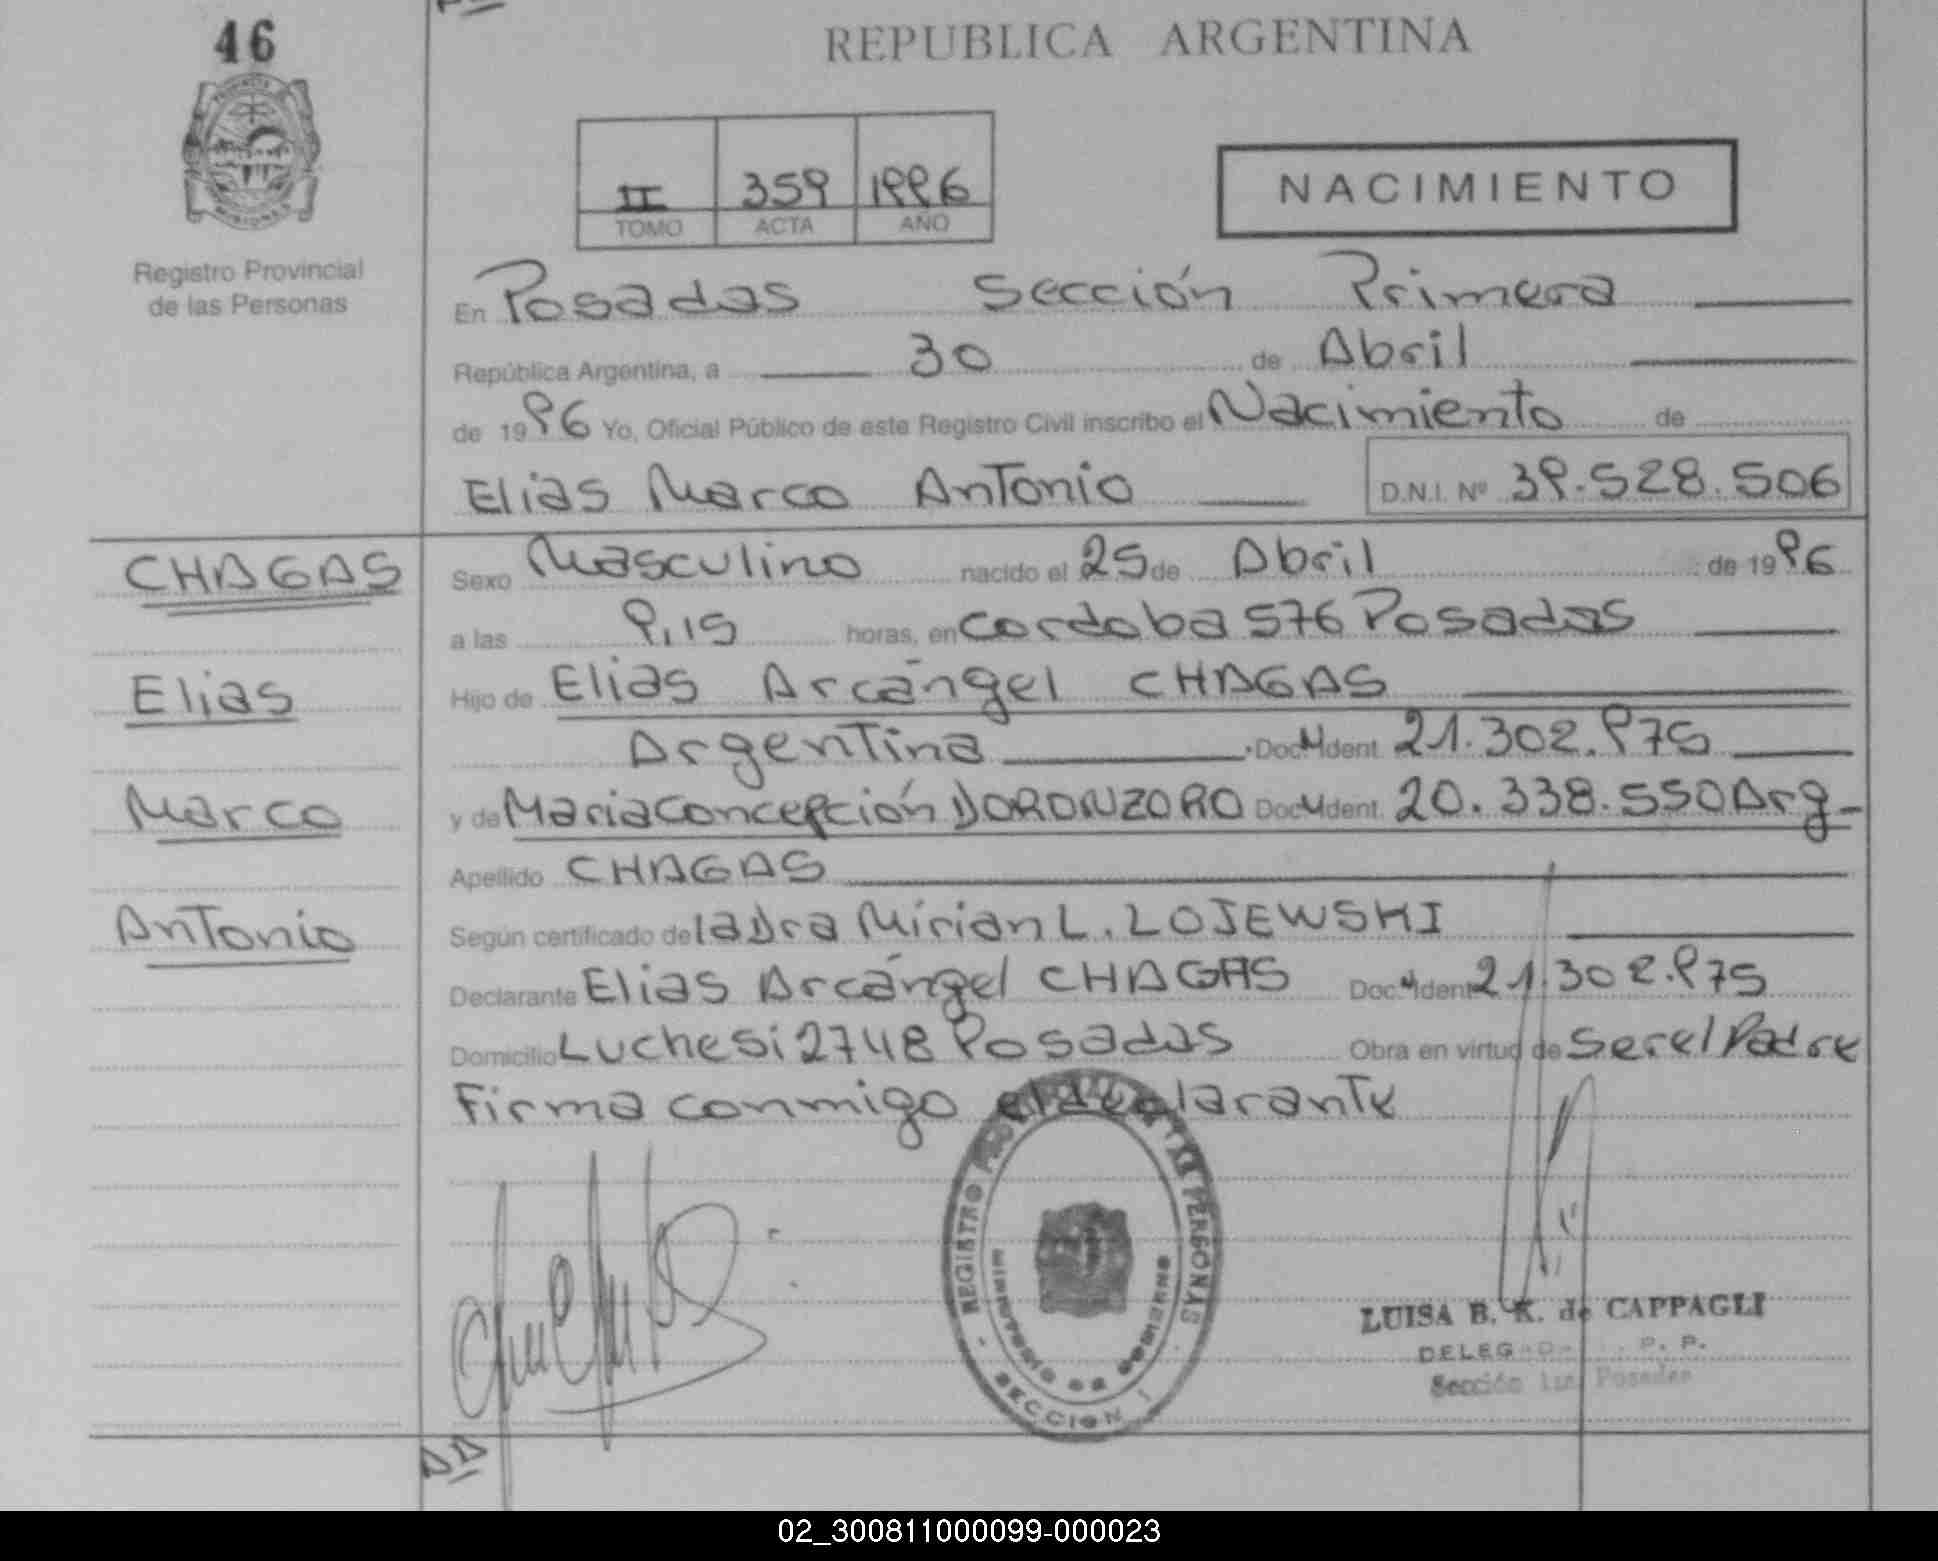 46
REPUBLICA ARGENTINA
II 359 1996
TOMO ACTA AÑO
NACIMIENTO
Registro Provincial
de las Personas
En Posadas Sección Primera
República Argentina, a 30 de Abril
de 1996 Yo, Oficial Público de este Registro Civil inscribo el Nacimiento de
Elias Marco Antonio D.N.I. Nº 39.528.506
CHAGAS
Elias
Marco
Antonio
Sexo Masculino nacido el 25 de Abril de 1996
a las 9,15 horas, en Cordoba 576 Posadas
Hijo de Elias Arcángel CHAGAS
Argentina Doc. Ident. 21.302.975
y de Maria Concepción DORONZORO Doc. Ident. 20.338.550 Arg
Apellido CHAGAS
Según certificado de la Dra Mirian L. LOJEWSKI
Declarante Elias Arcángel CHAGAS Doc. Ident 21.302.975
Domicilio Luchesi 2748 Posadas Obra en virtud de Ser el Padre
Firma conmigo el declarante
REGISTRO PROVINCIAL DE LAS PERSONAS
MINISTERIO DE GOBIERNO
SECCION 1
LUISA B. K. de CAPPAGLI
Sección 1ra. Posadas
02_300811000099-000023